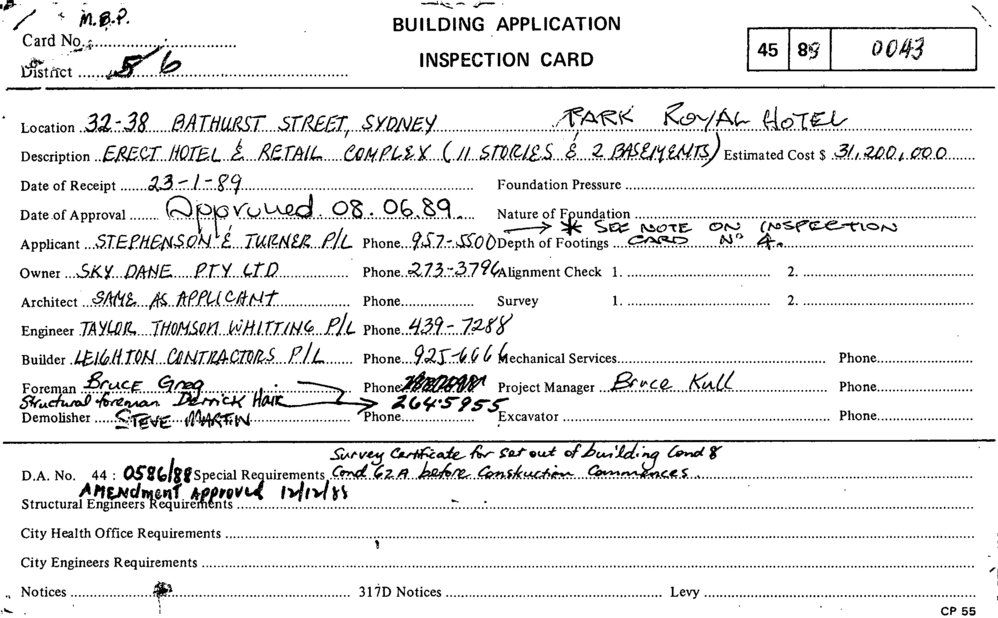 M.B.P.
BUILDING APPLICATION
Card No.
INSPECTION CARD
45 89 0043
District 56
Location 32-38 BATHURST STREET, SYDNEY PARK ROYAL HOTEL
Description ERECT HOTEL & RETAIL COMPLEX (11 STORIES & 2 BASEMENTS) Estimated Cost $ 31,200,000
Date of Receipt 23-1-89 Foundation Pressure
Date of Approval Approved 08.06.89 Nature of Foundation
→ * SEE NOTE ON INSPECTION
Applicant STEPHENSON & TURNER P/L Phone 957-5500 Depth of Footings CARD Nº 4.
Owner SKY DANE PTY LTD Phone 273-3796 Alignment Check 1. 2.
Architect SAME AS APPLICANT Phone Survey 1. 2.
Engineer TAYLOR THOMSON WHITTING P/L Phone 439-7288
Builder LEIGHTON CONTRACTORS P/L Phone 925-6666 Mechanical Services Phone
Foreman Bruce Greg Phone Project Manager Bruce Kull Phone
Structural foreman Derrick Hair → 264.5955
Demolisher STEVE MARTIN Phone Excavator Phone
Survey Certificate for set out of building Cond 8
D.A. No. 44 : 0586/88 Special Requirements Cond 62A before Construction Commences.
AMENDMENT APPROVED 12/12/88
Structural Engineers Requirements
City Health Office Requirements
City Engineers Requirements
Notices 317D Notices Levy
CP 55